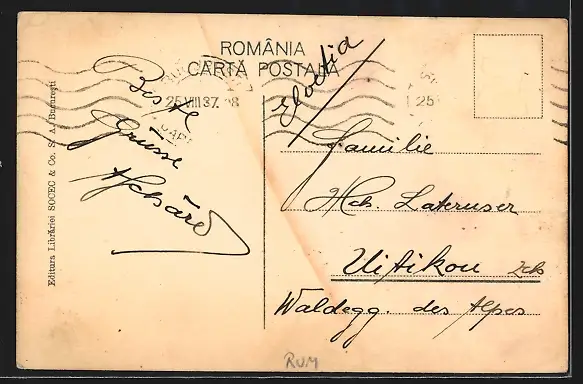 ROMÂNIA
CARTĂ POSTALĂ
Elveția
25.VIII.37.
25
Beste
Grüsse
Familie
Hch.
Uitikon Zch
Waldegg. des Alpes
Editura Librăriei SOCEC & Co. S. A. București
RUM